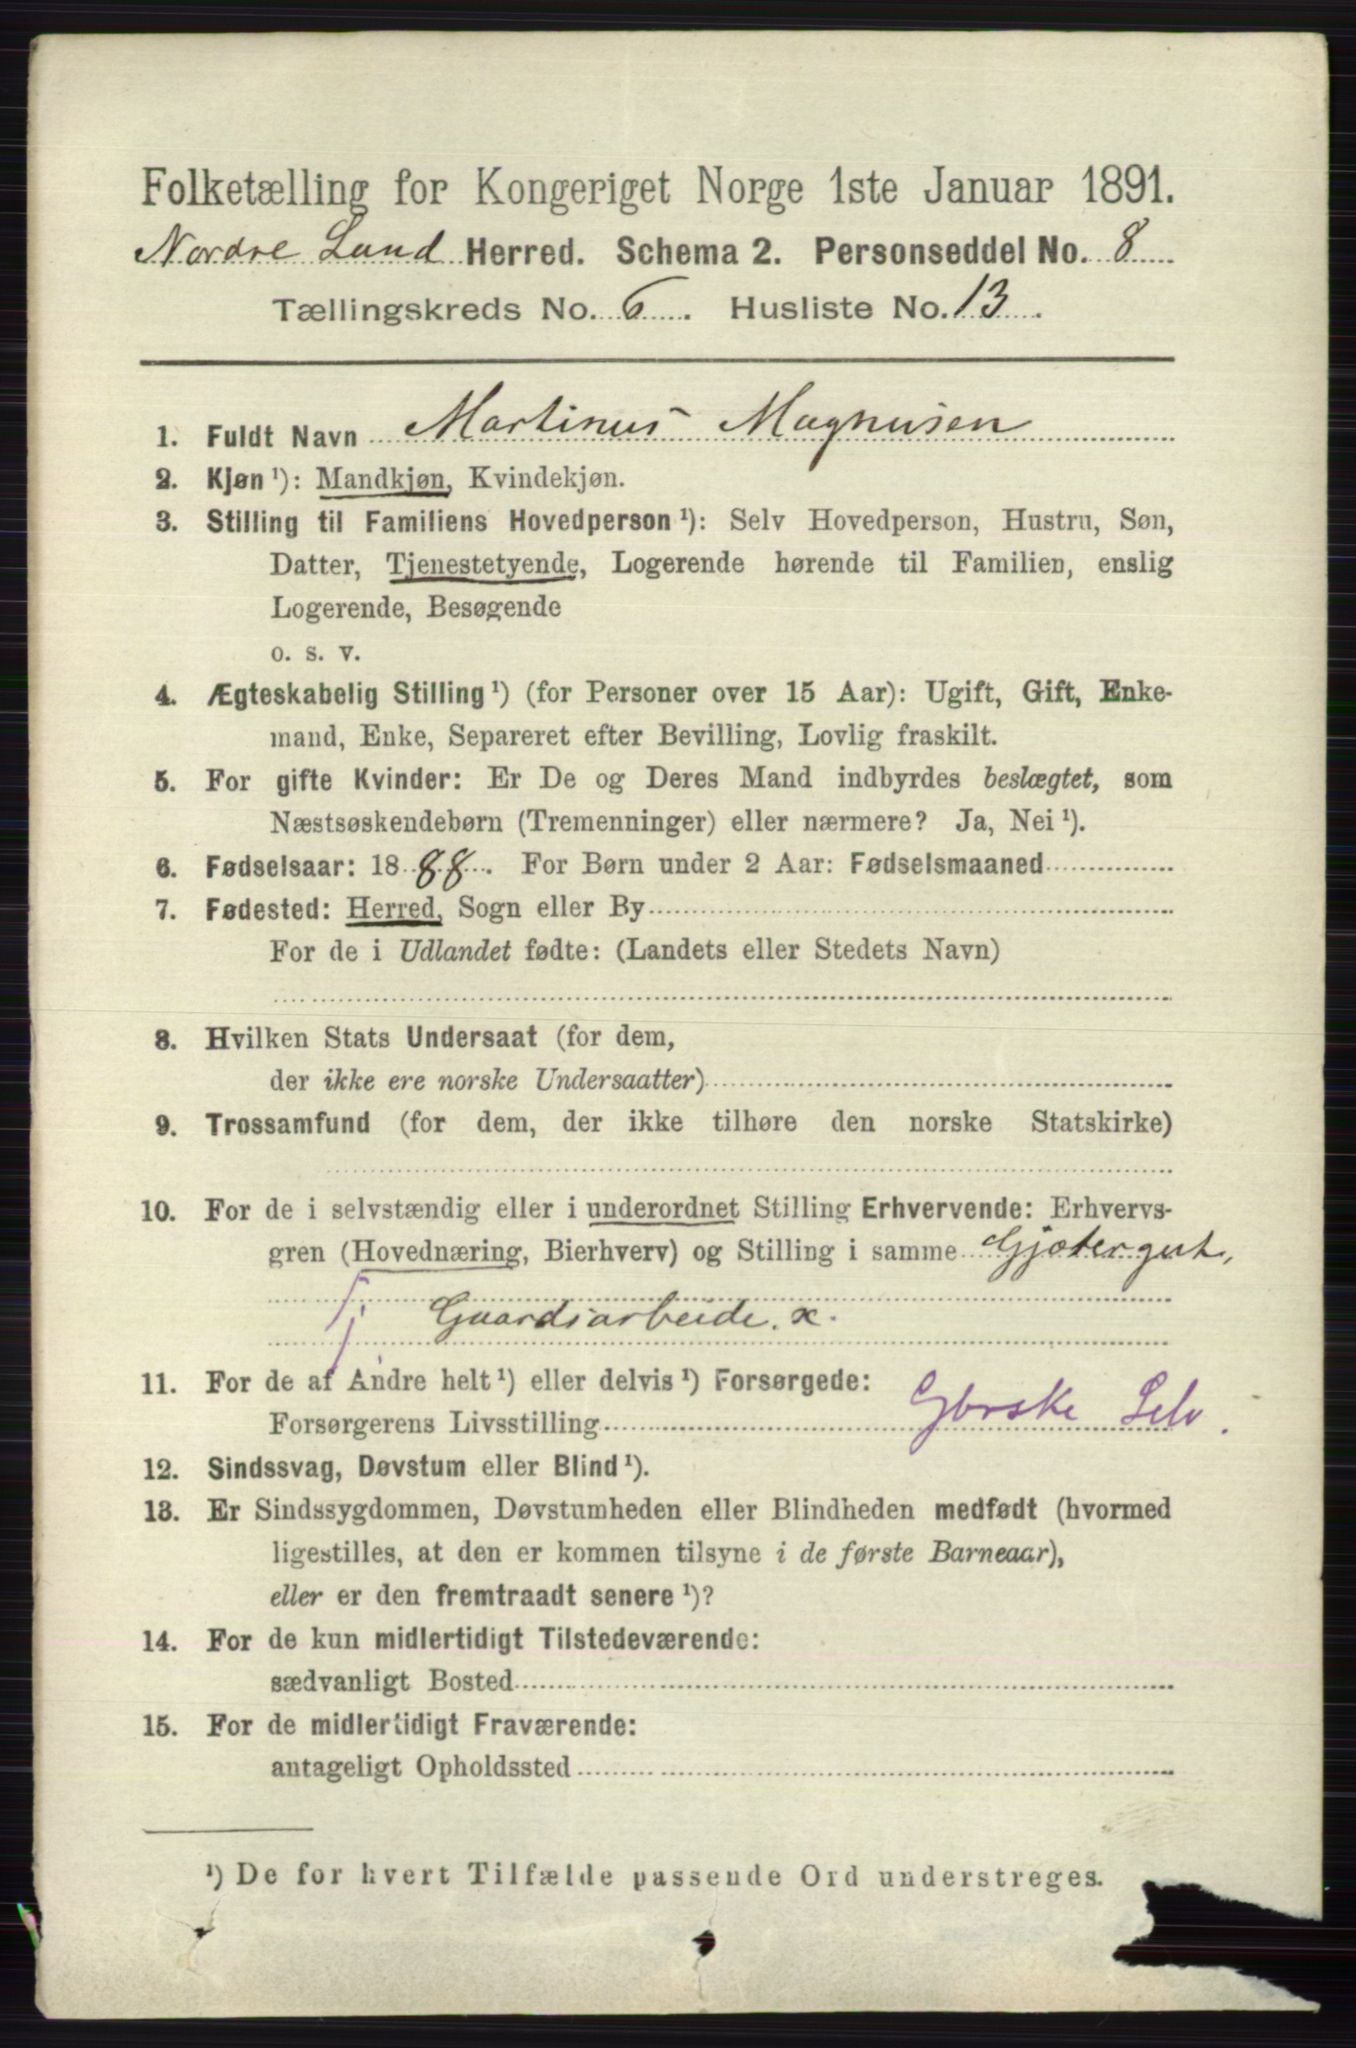 Folketælling for Kongeriget Norge 1ste Januar 1891.
Nordre Land Herred. Schema 2. Personseddel No. 8
Tællingskreds No. 6. Husliste No. 13.
1. Fuldt Navn Martinus Magnusen
2. Kjøn ¹): Mandkjøn, Kvindekjøn.
3. Stilling til Familiens Hovedperson ¹): Selv Hovedperson, Hustru, Søn,
Datter, Tjenestetyende, Logerende hørende til Familien, enslig
Logerende, Besøgende
o. s. v.
4. Ægteskabelig Stilling ¹) (for Personer over 15 Aar): Ugift, Gift, Enke-
mand, Enke, Separeret efter Bevilling, Lovlig fraskilt.
5. For gifte Kvinder: Er De og Deres Mand indbyrdes beslægtet, som
Næstsøskendebørn (Tremenninger) eller nærmere? Ja, Nei ¹).
6. Fødselsaar: 1888. For Børn under 2 Aar: Fødselsmaaned
7. Fødested: Herred, Sogn eller By
For de i Udlandet fødte: (Landets eller Stedets Navn)
8. Hvilken Stats Undersaat (for dem,
der ikke ere norske Undersaatter)
9. Trossamfund (for dem, der ikke tilhøre den norske Statskirke)
10. For de i selvstændig eller i underordnet Stilling Erhvervende: Erhvervs-
gren (Hovednæring, Bierhverv) og Stilling i samme Gjætergut,
Tj Gaardsarbeide. x.
11. For de af Andre helt ¹) eller delvis ¹) Forsørgede:
Forsørgerens Livsstilling Selv.
12. Sindssvag, Døvstum eller Blind ¹).
13. Er Sindssygdommen, Døvstumheden eller Blindheden medfødt (hvormed
ligestilles, at den er kommen tilsyne i de første Barneaar),
eller er den fremtraadt senere ¹)?
14. For de kun midlertidigt Tilstedeværende:
sædvanligt Bosted
15. For de midlertidigt Fraværende:
antageligt Opholdssted
¹) De for hvert Tilfælde passende Ord understreges.